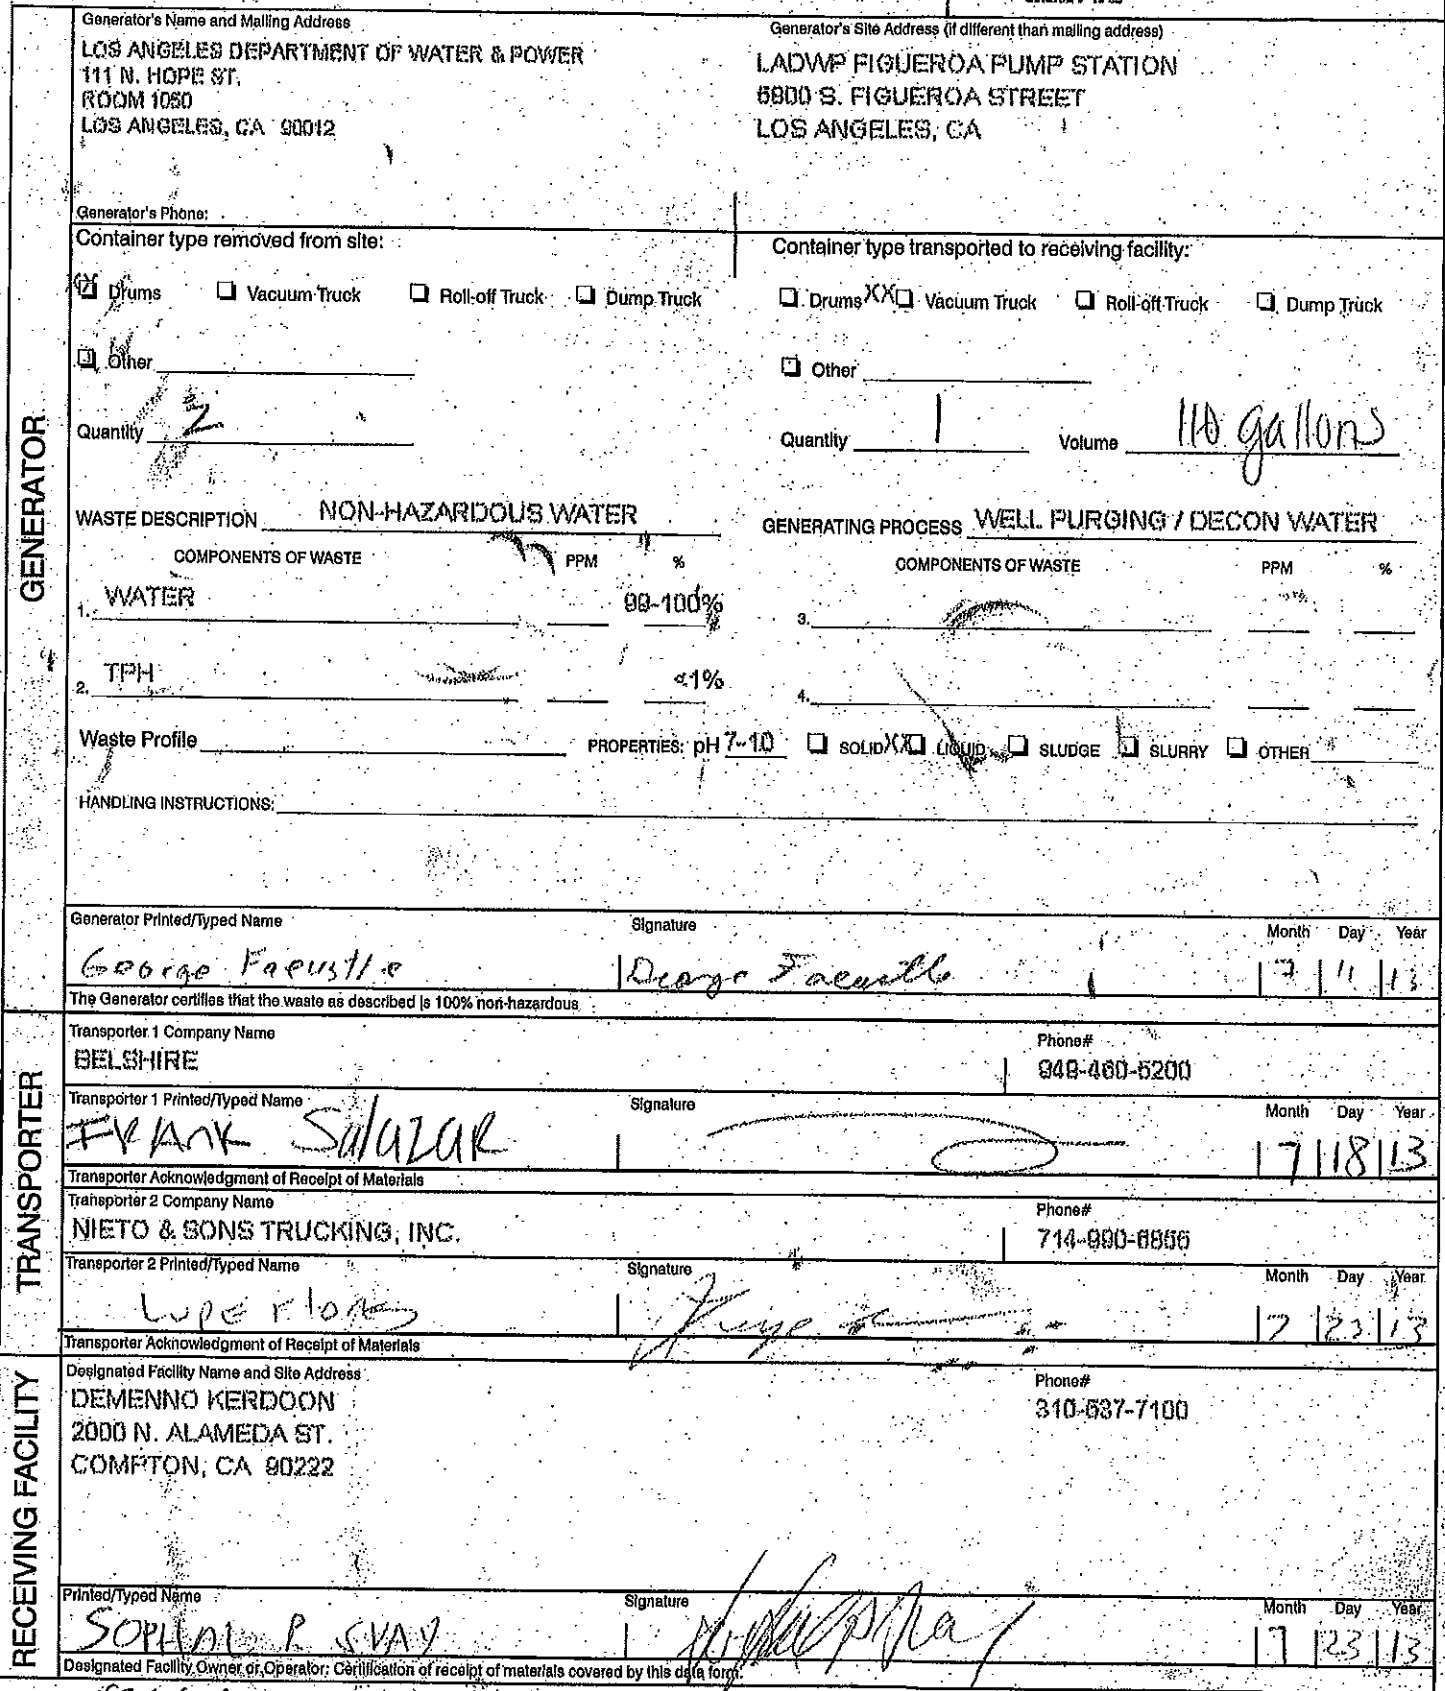 Generator's Name and Mailing Address
LOS ANGELES DEPARTMENT OF WATER & POWER
111 N. HOPE ST.
ROOM 1050
LOS ANGELES, CA 90012
Generator's Site Address (if different than mailing address)
LADWP FIGUEROA PUMP STATION
S. FIGUEROA STREET
LOS ANGELES, CA
Generator's Phone:
GENERATOR
Container type removed from site:
XX Drums Vacuum Truck Roll-off Truck Dump Truck
Other
Quantity 2
Container type transported to receiving facility:
Drums XX Vacuum Truck Roll-off Truck Dump Truck
Other
Quantity 1 Volume 110 gallons
WASTE DESCRIPTION NON-HAZARDOUS WATER
GENERATING PROCESS WELL PURGING / DECON WATER
COMPONENTS OF WASTE PPM %
COMPONENTS OF WASTE PPM %
1. WATER 99-100%
3.
2. TPH <1%
4.
Waste Profile PROPERTIES: pH 7-10 SOLID XX LIQUID SLUDGE SLURRY OTHER
HANDLING INSTRUCTIONS:
Generator Printed/Typed Name Signature Month Day Year
George Faeustle George Faeustle 7 11 13
The Generator certifies that the waste as described is 100% non-hazardous
TRANSPORTER
Transporter 1 Company Name Phone#
BELSHIRE 949-460-5200
Transporter 1 Printed/Typed Name Signature Month Day Year
FRANK Salazar 7 18 13
Transporter Acknowledgment of Receipt of Materials
Transporter 2 Company Name Phone#
NIETO & SONS TRUCKING, INC. 714-990-6855
Transporter 2 Printed/Typed Name Signature Month Day Year
Lupe Flores 7 23 13
Transporter Acknowledgment of Receipt of Materials
RECEIVING FACILITY
Designated Facility Name and Site Address Phone#
DEMENNO KERDOON 310-537-7100
2000 N. ALAMEDA ST.
COMPTON, CA 90222
Printed/Typed Name Signature Month Day Year
SOPHAL P SVAY 7 23 13
Designated Facility Owner or Operator: Certification of receipt of materials covered by this data form.